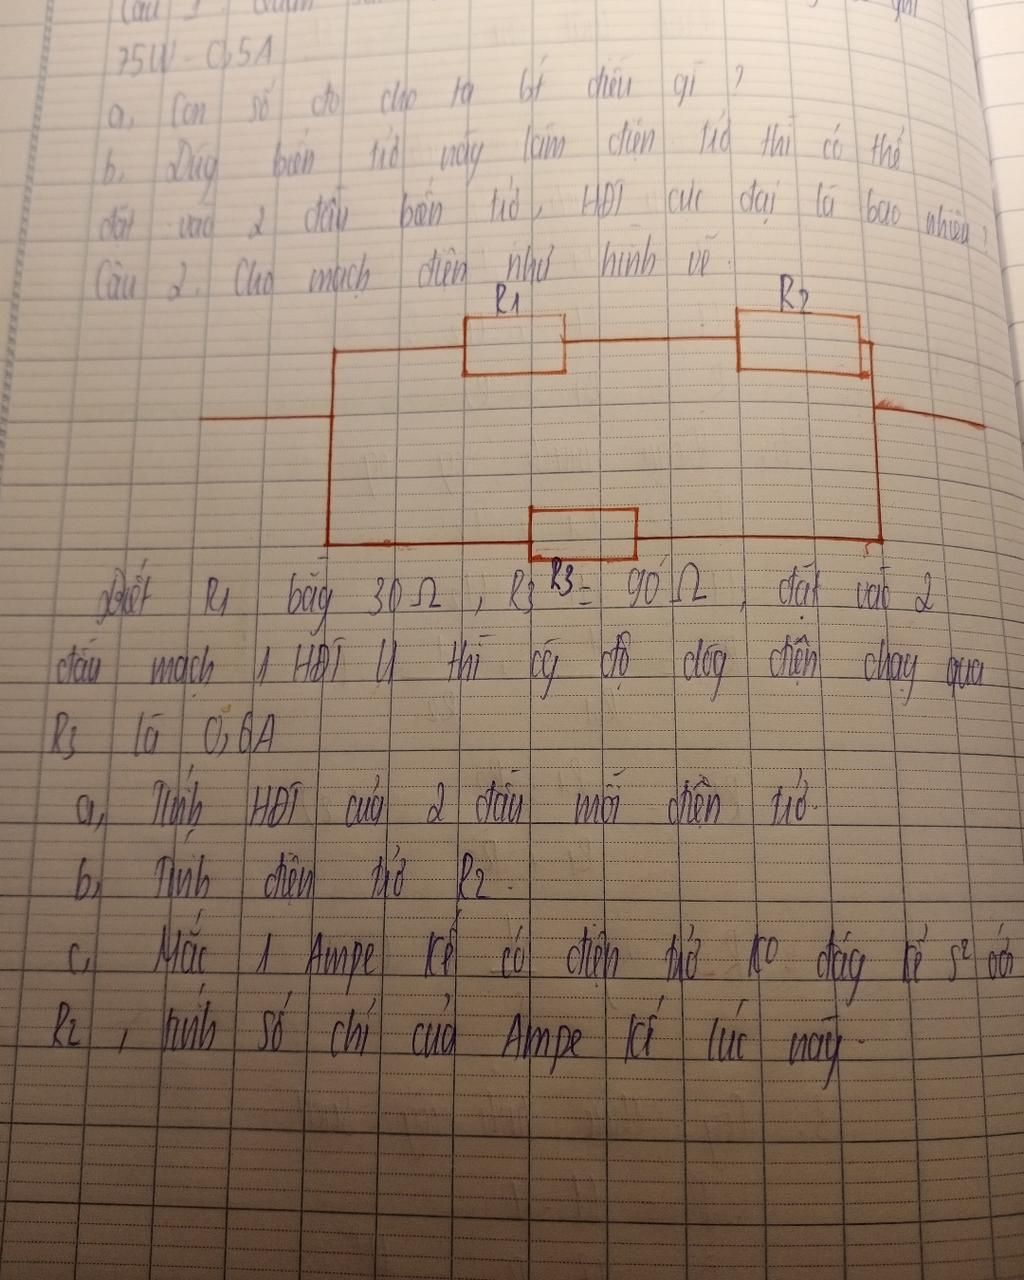 Câu 1
75W - 0,5A
a, Con số đó cho ta bí điều gì ?
b, Dùg biến tiở này làm điện tiở thì có thể
đặt vào 2 đầu biến tiở, HĐT cực đại là bao nhiêu ?
Câu 2. Cho mạch điện như hình vẽ.
R1 R2
R3
Biết R1 bằg 30Ω , R3 = 90Ω , đặt vào 2
đầu mạch 1 HĐT U thì cg độ dòg điện chạy qua
R3 là 0,6A
a, Tính HĐT của 2 đầu mỗi điện tiở.
b, Tính điện tiở R2.
c, Mắc 1 Ampe kế có điện tiở ko đág kể s² với
R2 , tính số chỉ của Ampe kế lúc này.